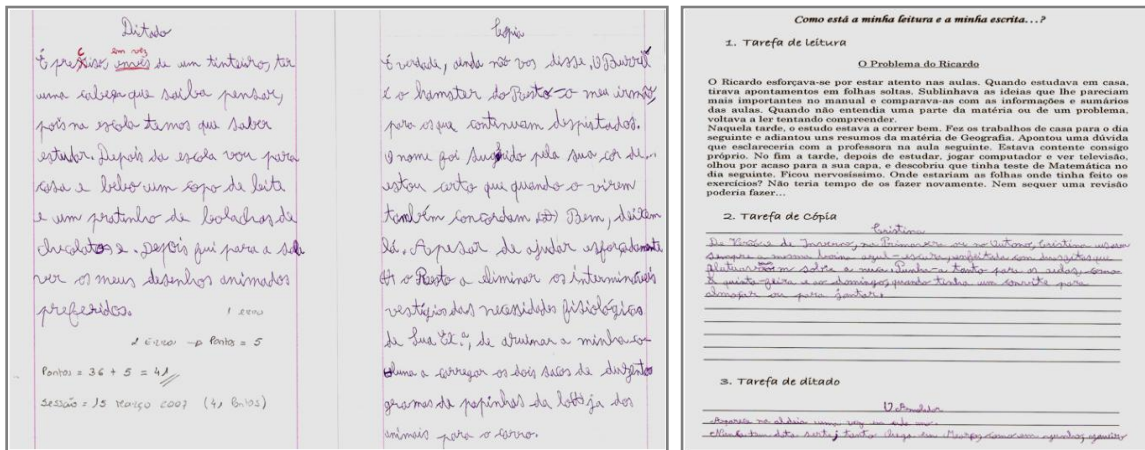 Ditado
É preciso invés de um tinteiro, ter
em vez
uma cabeça que saiba pensar,
pois na escola temos que saber
estudar. Depois da escola vou para
casa e bebo um copo de leite
e um pratinho de bolachas de
chocolate e. Depois fui para a sala
ver os meus desenhos animados
preferidos.
1 erro
2 Erros → Pontos = 5
Pontos = 36 + 5 = 41
Sessão = 15 Março 2007 (41 Pontos)
Cópia
É verdade, ainda não vos disse. O Burrié
é o hamster do Resto - o meu irmão,
para os que continuam despistados.
O nome foi sugerido pela sua cor de...
estou certo que quando o virem
também concordam Bem, deixem
lá. Apesar de ajudar esforçadamente
o Resto a eliminar os intermináveis
vestígios das necessidades fisiológicas
de Sua Ex.ª, de arruinar a minha co-
luna a carregar os dois sacos de duzentos
gramas de papinhas da loja dos
animais para o carro.
Como está a minha leitura e a minha escrita...?
1. Tarefa de leitura
O Problema do Ricardo
O Ricardo esforçava-se por estar atento nas aulas. Quando estudava em casa,
tirava apontamentos em folhas soltas. Sublinhava as ideias que lhe pareciam
mais importantes no manual e comparava-as com as informações e sumários
das aulas. Quando não entendia uma parte da matéria ou de um problema,
voltava a ler tentando compreender.
Naquela tarde, o estudo estava a correr bem. Fez os trabalhos de casa para o dia
seguinte e adiantou uns resumos da matéria de Geografia. Apontou uma dúvida
que esclareceria com a professora na aula seguinte. Estava contente consigo
próprio. No fim a tarde, depois de estudar, jogar computador e ver televisão,
olhou por acaso para a sua capa, e descobriu que tinha teste de Matemática no
dia seguinte. Ficou nervosíssimo. Onde estariam as folhas onde tinha feito os
exercícios? Não teria tempo de os fazer novamente. Nem sequer uma revisão
poderia fazer...
2. Tarefa de Cópia
Cristina
de Inverno, na Primavera ou no Outono, Cristina usava
sempre a mesma boina azul-escura, enfeitada com
sobre a nuca. Punha-a tanto para as aulas, como
à quinta-feira e ao domingo, quando tinha um convite para
almoçar ou para jantar.
3. Tarefa de ditado
O Amolador
Aparece na aldeia uma vez
tanto chega em Março, como em